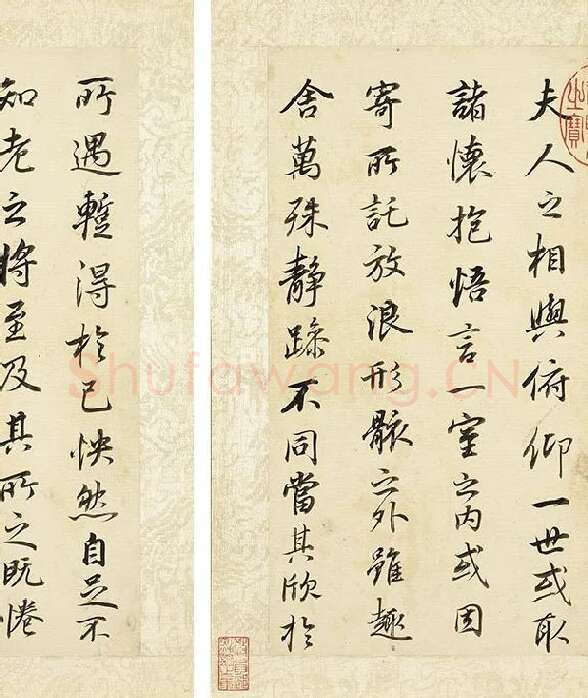 夫人之相與俯仰一世或取
諸懷抱悟言一室之内或因
寄所託放浪形骸之外雖趣
舍萬殊静躁不同當其欣於
所遇蹔得於己怏然自足不
知老之將至及其所之既惓
之寶
Shufawang.CN